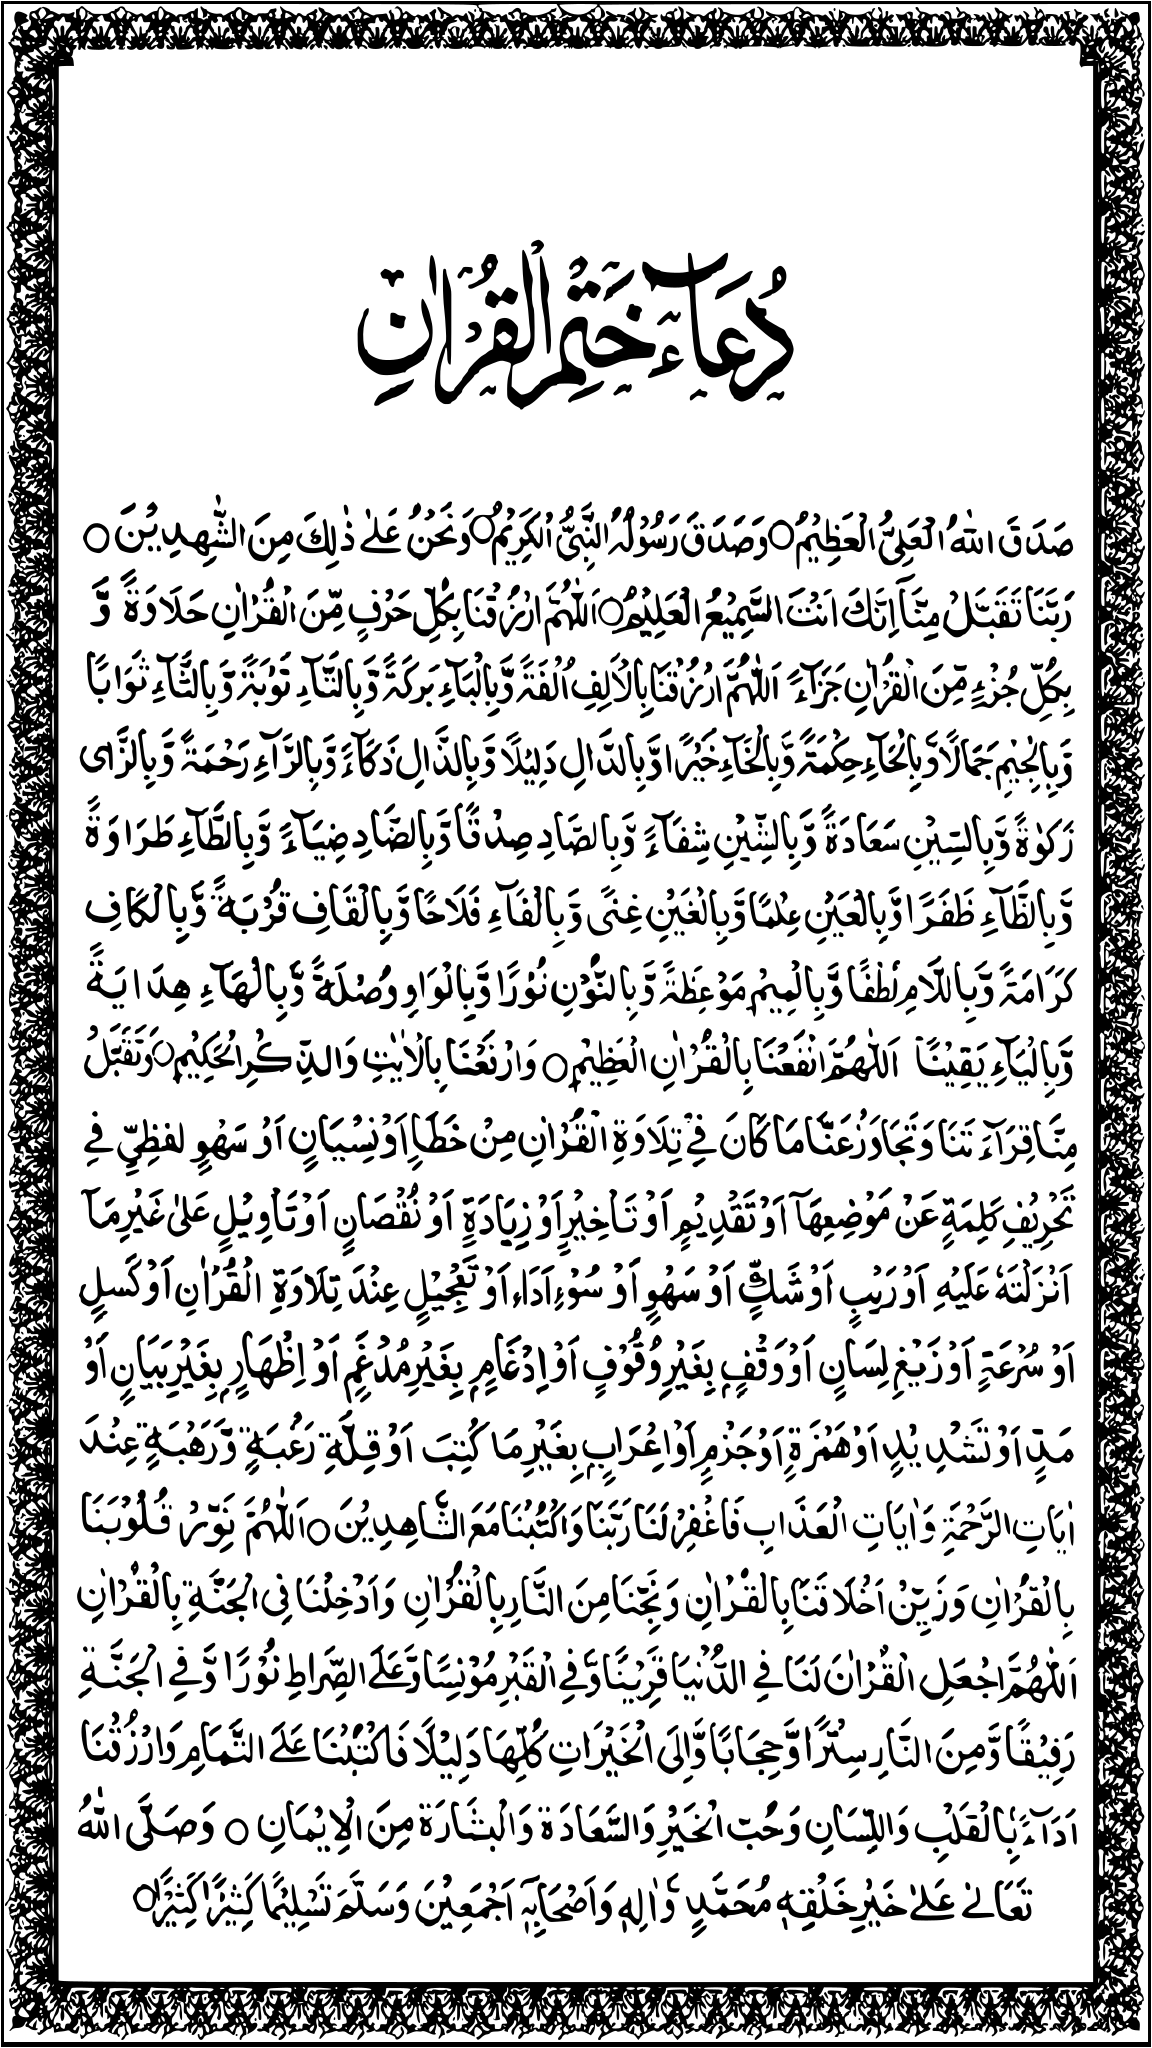 دُعَآءِ خَتْمِ الْقُرْاٰنِ
صَدَقَ اللّٰهُ الْعَلِیُّ الْعَظِیْمُ ○ وَصَدَقَ رَسُوْلُهُ النَّبِیُّ الْكَرِیْمُ ○ وَنَحْنُ عَلٰی ذٰلِكَ مِنَ الشّٰهِدِیْنَ ○
رَبَّنَا تَقَبَّلْ مِنَّآ اِنَّكَ اَنْتَ السَّمِیْعُ الْعَلِیْمُ ○ اَللّٰهُمَّ ارْزُقْنَا بِكُلِّ حَرْفٍ مِّنَ الْقُرْاٰنِ حَلَاوَةً وَّ
بِكُلِّ جُزْءٍ مِّنَ الْقُرْاٰنِ جَزَآءً اَللّٰهُمَّ ارْزُقْنَا بِالْاَلِفِ اُلْفَةً وَّبِالْبَآءِ بَرَكَةً وَّبِالتَّآءِ تَوْبَةً وَّبِالثَّآءِ ثَوَابًا
وَّبِالْجِیْمِ جَمَالًا وَّبِالْحَآءِ حِكْمَةً وَّبِالْخَآءِ خَیْرًا وَّبِالدَّالِ دَلِیْلًا وَّبِالذَّالِ ذَكَآءً وَّبِالرَّآءِ رَحْمَةً وَّبِالزَّای
زَكٰوةً وَّبِالسِّیْنِ سَعَادَةً وَّبِالشِّیْنِ شِفَآءً وَّبِالصَّادِ صِدْقًا وَّبِالضَّادِ ضِیَآءً وَّبِالطَّآءِ طَرَاوَةً
وَّبِالظَّآءِ ظَفَرًا وَّبِالْعَیْنِ عِلْمًا وَّبِالْغَیْنِ غِنًی وَّبِالْفَآءِ فَلَاحًا وَّبِالْقَافِ قُرْبَةً وَّبِالْكَافِ
كَرَامَةً وَّبِاللَّامِ لُطْفًا وَّبِالْمِیْمِ مَوْعِظَةً وَّبِالنُّوْنِ نُوْرًا وَّبِالْوَاوِ وُصْلَةً وَّبِالْهَآءِ هِدَایَةً
وَّبِالْیَآءِ یَقِیْنًا اَللّٰهُمَّ انْفَعْنَا بِالْقُرْاٰنِ الْعَظِیْمِ ○ وَارْفَعْنَا بِالْاٰیٰتِ وَالذِّكْرِ الْحَكِیْمِ ○ وَتَقَبَّلْ
مِنَّا قِرَآءَتَنَا وَتَجَاوَزْ عَنَّا مَا كَانَ فِیْ تِلَاوَةِ الْقُرْاٰنِ مِنْ خَطَاٍ اَوْ نِسْیَانٍ اَوْ سَهْوٍ لفظِیٍّ فِی
تَحْرِیْفِ كَلِمَةٍ عَنْ مَوْضِعِهَآ اَوْ تَقْدِیْمٍ اَوْ تَاْخِیْرٍ اَوْ زِیَادَةٍ اَوْ نُقْصَانٍ اَوْ تَاْوِیْلٍ عَلٰی غَیْرِ مَآ
اَنْزَلْتَهٗ عَلَیْهِ اَوْ رَیْبٍ اَوْ شَكٍّ اَوْ سَهْوٍ اَوْ سُوْءِ اَدَاءٍ اَوْ تَعْجِیْلٍ عِنْدَ تِلَاوَةِ الْقُرْاٰنِ اَوْ كَسلٍ
اَوْ سُرْعَةٍ اَوْ زَیْغِ لِسَانٍ اَوْ وَقْفٍ بِغَیْرِ وُقُوْفٍ اَوْ اِدْغَامٍ بِغَیْرِ مُدْغَمٍ اَوْ اِظْهَارٍ بِغَیْرِ بَیَانٍ اَوْ
مَدٍّ اَوْ تَشْدِیْدٍ اَوْ هَمْزَةٍ اَوْ جَزْمٍ اَوْ اِعْرَابٍ بِغَیْرِ مَا كُتِبَ اَوْ قِلَّةِ رَغْبَةٍ وَّرَهْبَةٍ عِنْدَ
اٰیَاتِ الرَّحْمَةِ وَاٰیَاتِ الْعَذَابِ فَاغْفِرْ لَنَا رَبَّنَا وَاكْتُبْنَا مَعَ الشَّاهِدِیْنَ ○ اَللّٰهُمَّ نَوِّرْ قُلُوْبَنَا
بِالْقُرْاٰنِ وَزَیِّنْ اَخْلَاقَنَا بِالْقُرْاٰنِ وَنَجِّنَا مِنَ النَّارِ بِالْقُرْاٰنِ وَاَدْخِلْنَا فِی الْجَنَّةِ بِالْقُرْاٰنِ
اَللّٰهُمَّ اجْعَلِ الْقُرْاٰنَ لَنَا فِی الدُّنْیَا قَرِیْنًا وَّفِی الْقَبْرِ مُوْنِسًا وَّعَلَی الصِّرَاطِ نُوْرًا وَّفِی الْجَنَّةِ
رَفِیْقًا وَّمِنَ النَّارِ سِتْرًا وَّحِجَابًا وَّاِلَی الْخَیْرَاتِ كُلِّهَا دَلِیْلًا فَاكْتُبْنَا عَلَی التَّمَامِ وَارْزُقْنَا
اَدَآءً بِالْقَلْبِ وَاللِّسَانِ وَحُبِّ الْخَیْرِ وَالسَّعَادَةِ وَالْبشَارَةِ مِنَ الْاِیْمَانِ ○ وَصَلَّی اللّٰهُ
تَعَالٰی عَلٰی خَیْرِ خَلْقِهٖ مُحَمَّدٍ وَّاٰلِهٖ وَاَصْحَابِهٖٓ اَجْمَعِیْنَ وَسَلَّمَ تَسْلِیْمًا كَثِیْرًا كَثِیْرًا ○